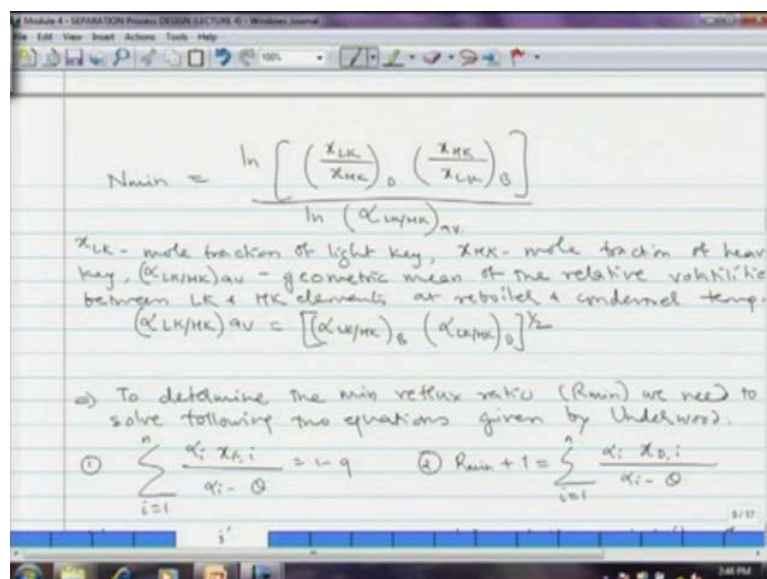 Module 4 - SEPARATION Process DESIGN (LECTURE 4) - Windows Journal
File Edit View Insert Actions Tools Help
100%
Nmin = ln [ (x_LK / x_HK)_D (x_HK / x_LK)_B ] / ln (α_LK/HK)_av.
x_LK - mole fraction of light key, x_HK - mole fraction of heav
key, (α_LK/HK)av - geometric mean of the relative volatilitie
between LK & HK elements at reboiler & condenser temp.
(α_LK/HK)av = [(α_LK/HK)_B (α_LK/HK)_D]^1/2
⇒ To determine the min reflux ratio (Rmin) we need to
solve following two equations given by Underwood.
① Σ_{i=1}^{n} α_i x_F,i / (α_i - θ) = 1-q ② Rmin + 1 = Σ_{i=1}^{n} α_i x_D,i / (α_i - θ)
9/17
2:46 PM